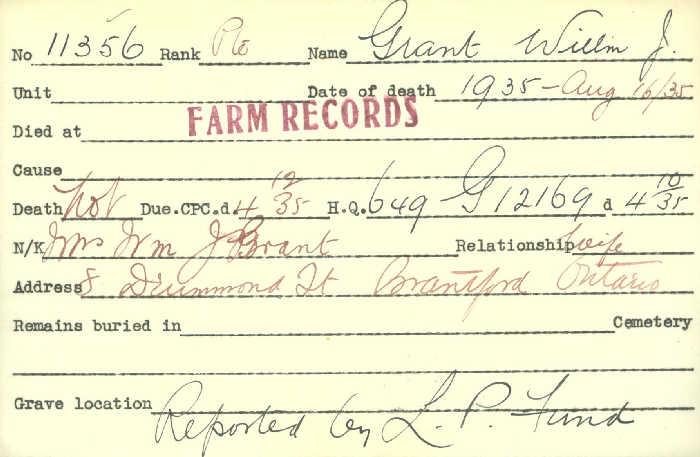 No 11356 Rank Pte Name Grant Willm J.
Unit Date of death 1935 - Aug 16/35
FARM RECORDS
Died at
Cause
Death Not Due.CPC.d. 4 12/35 H.Q. 649 G 12169 d 4 10/35
N/K Mrs Wm J Grant Relationship wife
Address 8 Drummond St Brantford Ontario
Remains buried in Cemetery
Grave location
Reported by L. P. Fund